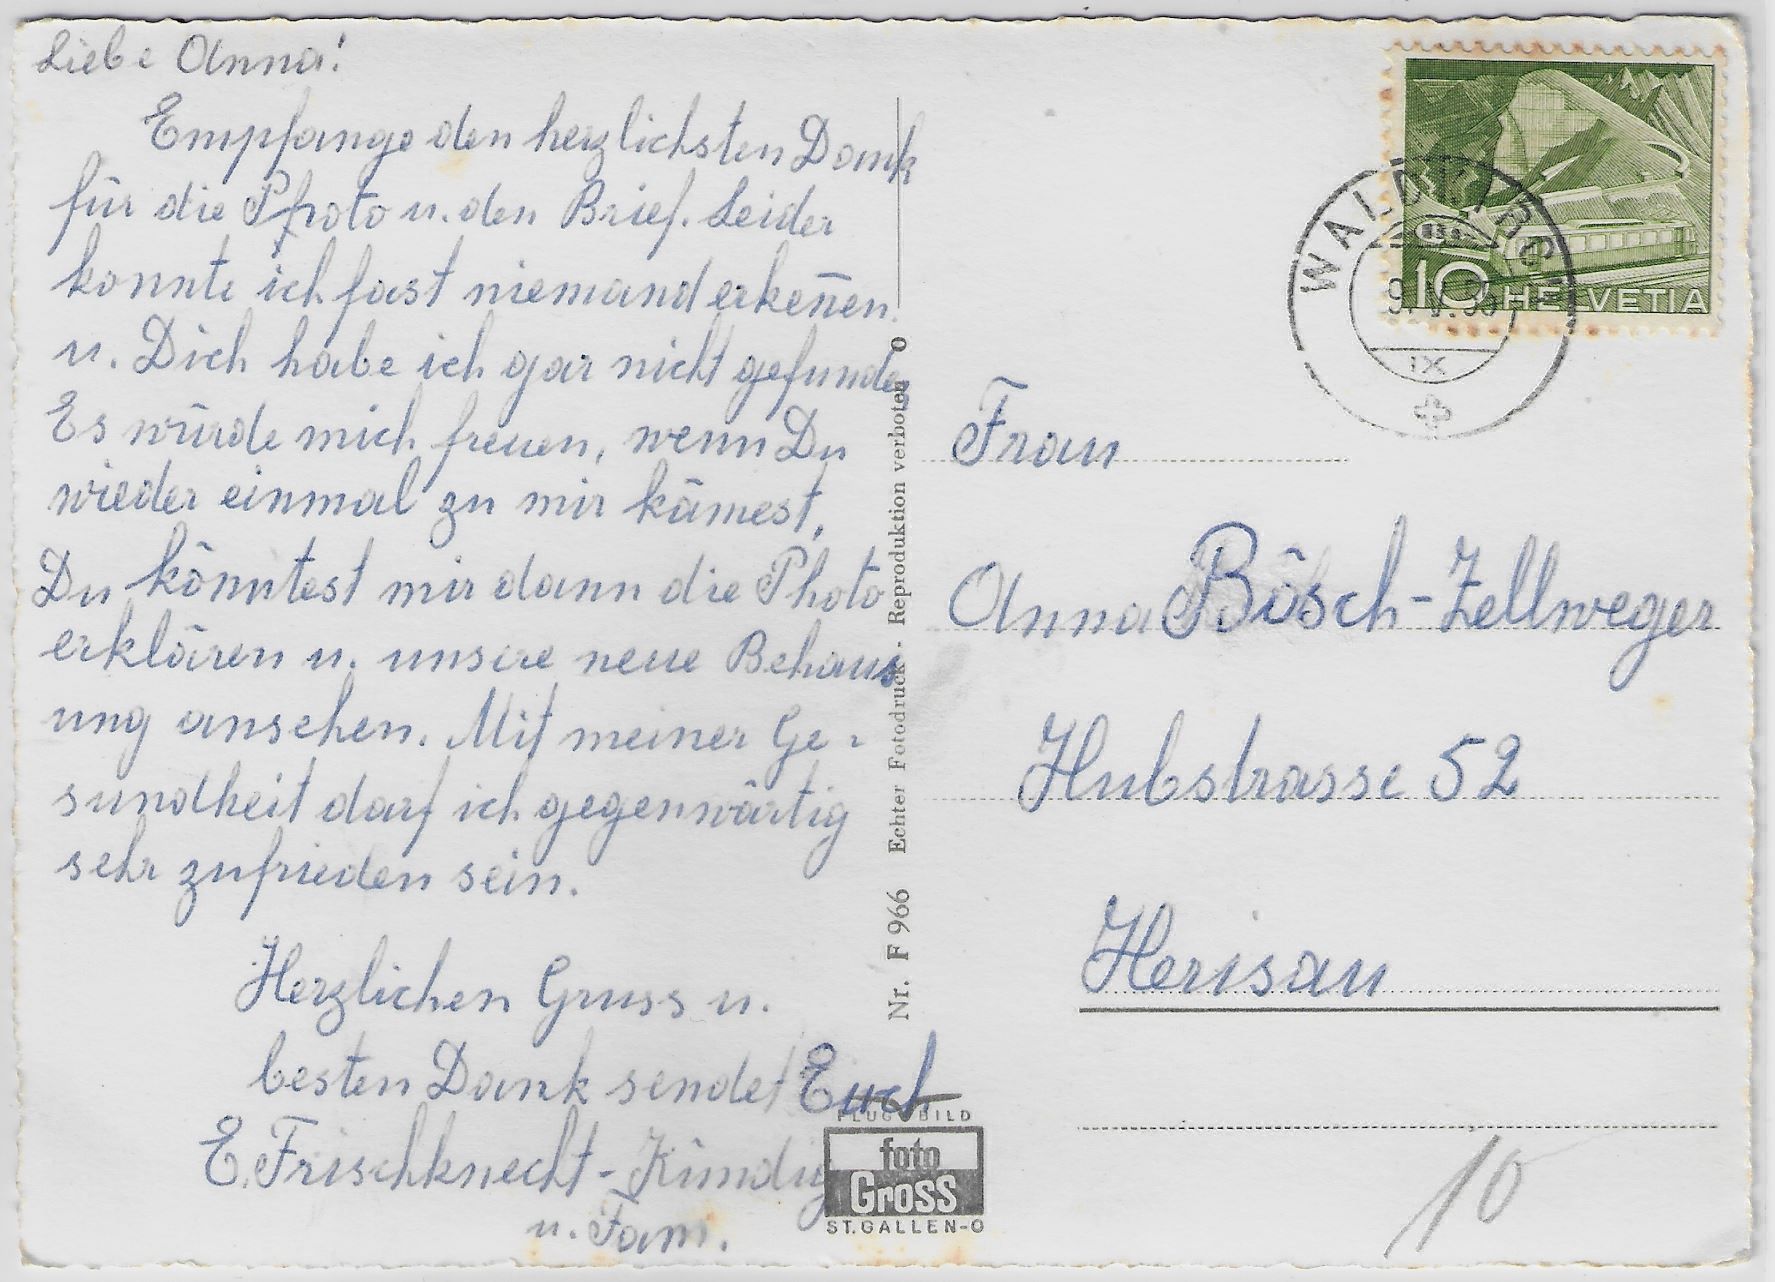 Liebe Anna!
Empfange den herzlichsten Dank
für die Photo u. den Brief. Leider
konnte ich fast niemand erkeñen.
u. Dich habe ich gar nicht gefunden
Es würde mich freuen, wenn Du
wieder einmal zu mir kämest,
Du könntest mir dann die Photo
erklären u. unsere neue Behaus
ung ansehen. Mit meiner Ge-
sundheit darf ich gegenwärtig
sehr zufrieden sein.
Herzlichen Gruss u.
besten Dank sendet Euch
E. Frischknecht-Kündig
u. Fam.
Nr. F 966 Echter Fotodruck - Reproduktion verboten O
FLUGBILD
foto
Gross
ST.GALLEN-O
10 HELVETIA
WALDKIRCH
IX
Frau
Anna Bösch-Zellweger
Hubstrasse 52
Herisau
10